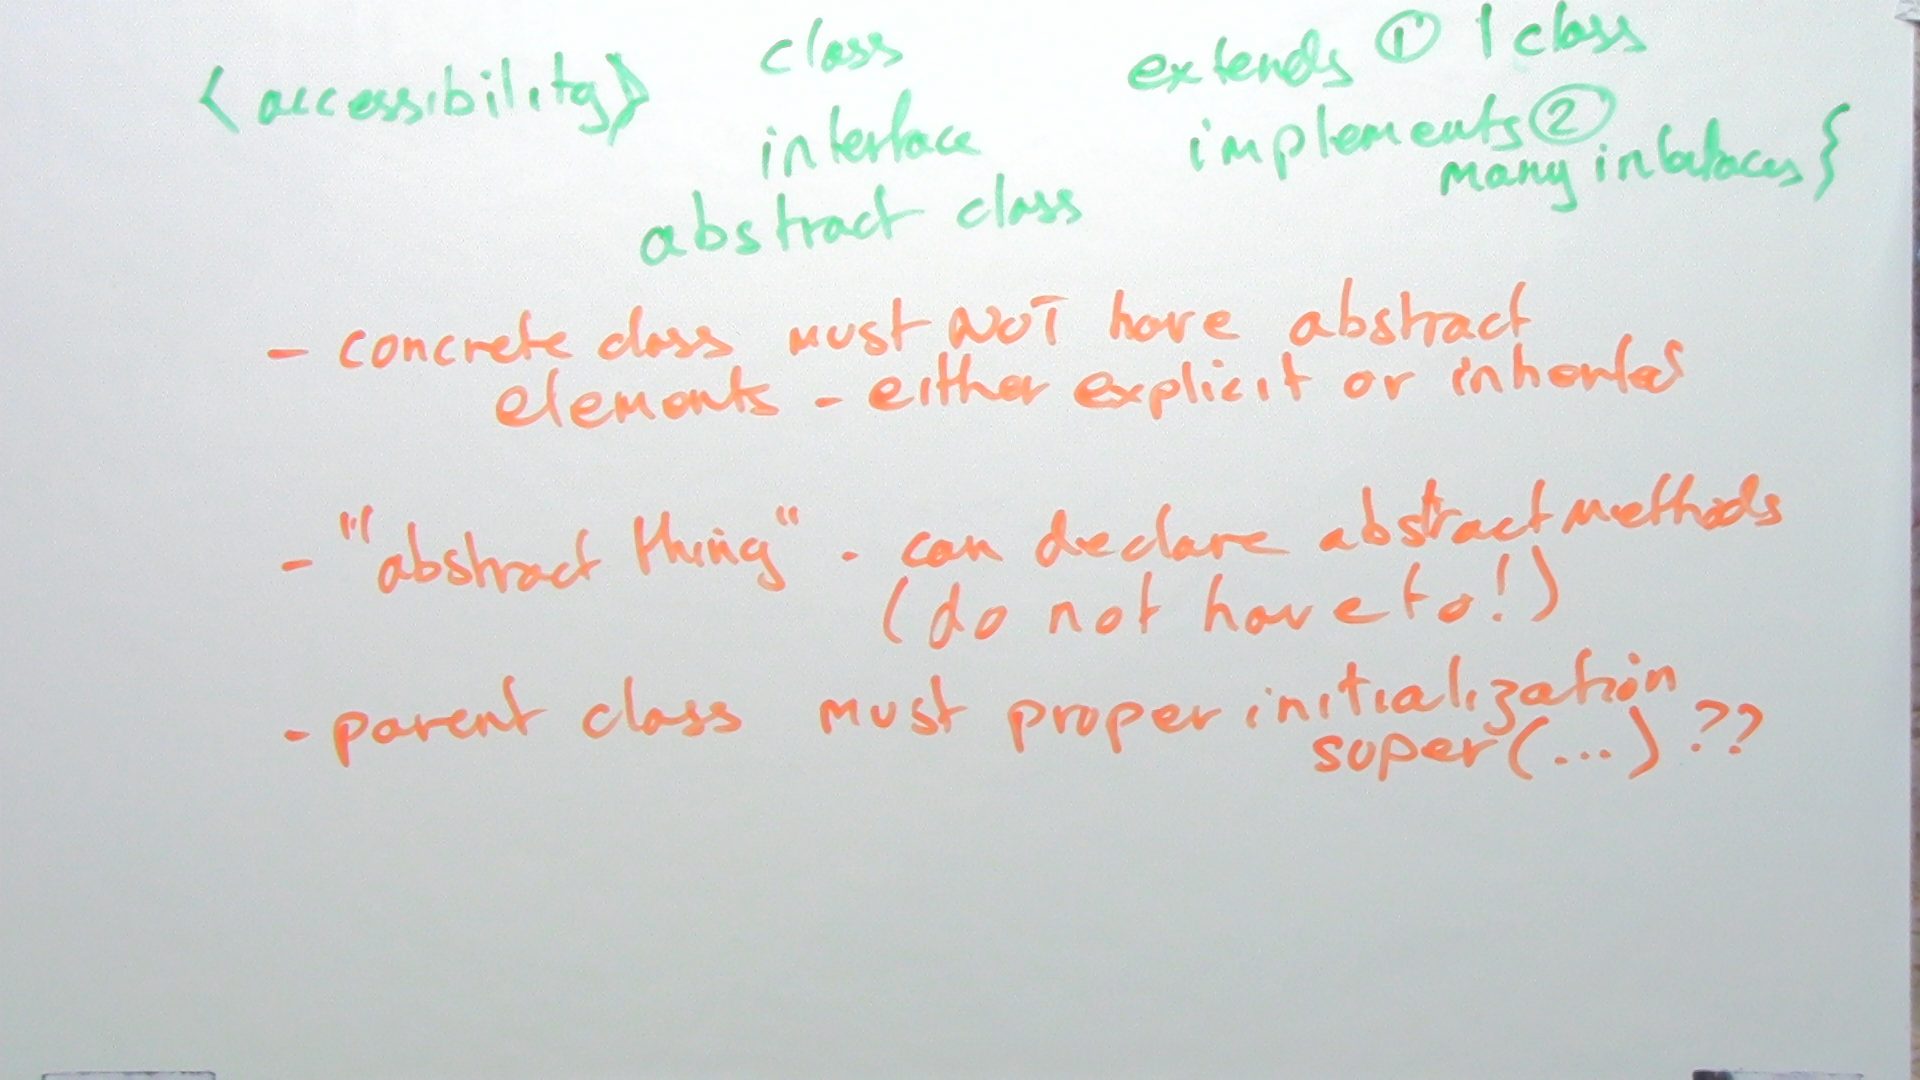 <accessibility> class extends ① 1 class
interface implements ②
many interfaces {
abstract class
- concrete class must NOT have abstract
elements - either explicit or inherited
- "abstract thing" - can declare abstract methods
(do not have to!)
- parent class must proper initialization
super(...) ??